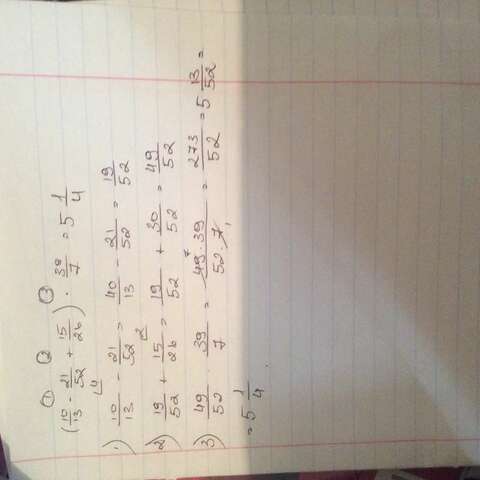 ① ② ③
(10/13 - 21/52 + 15/26) · 39/7 = 5 1/4
1) 10/13 - 21/52 = 40/13 - 21/52 = 19/52
2) 19/52 + 15/26 = 19/52 + 30/52 = 49/52
3) 49/52 · 39/7 = 49·39/52·7 = 273/52 = 5 13/52 =
= 5 1/4